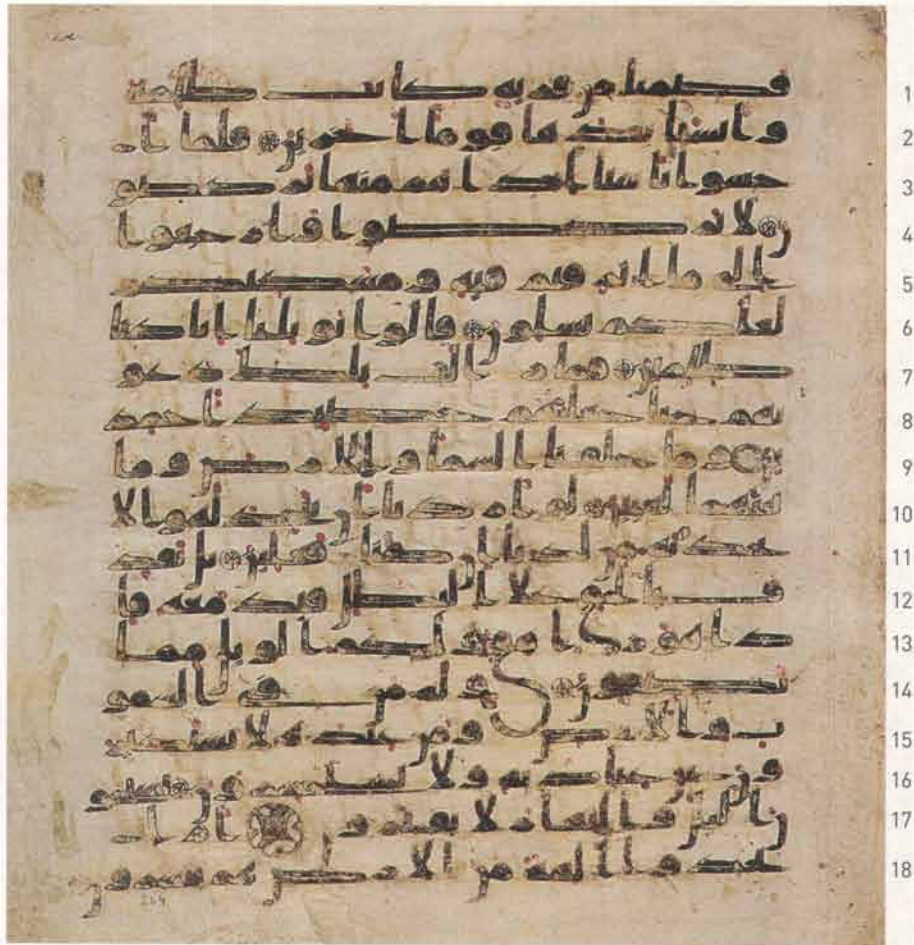 1 قصمنا من قرية كانت ظلمة
2 وانشانا بعدها قوما اخرين فلما ا
3 حسوا باسنا اذا هم منها يركضو
4 ن لا تركضوا وارجعوا
5 الى ما اترفتم فيه ومسكنكم
6 لعلكم تسلون قالوا يويلنا انا كنا
7 ظلمين فما زالت تلك دعو
8 يهم حتى جعلنهم حصيدا خمد
9 ين وما خلقنا السما والارض وما
10 بينهما لعبين لو اردنا ان نتخذ لهوا لا
11 تخذنه من لدنا ان كنا فعلين بل نقذ
12 ف بالحق على البطل فيدمغه فا
13 ذا هو زهق ولكم الويل مما
14 تصفون وله من في السمو
15 ت والارض ومن عنده لا يستكبر
16 ون عن عبادته ولا يستحسرون يسبحو
17 ن اليل والنهار لا يفترون ام ا
18 تخذوا الهة من الارض هم ينشرون